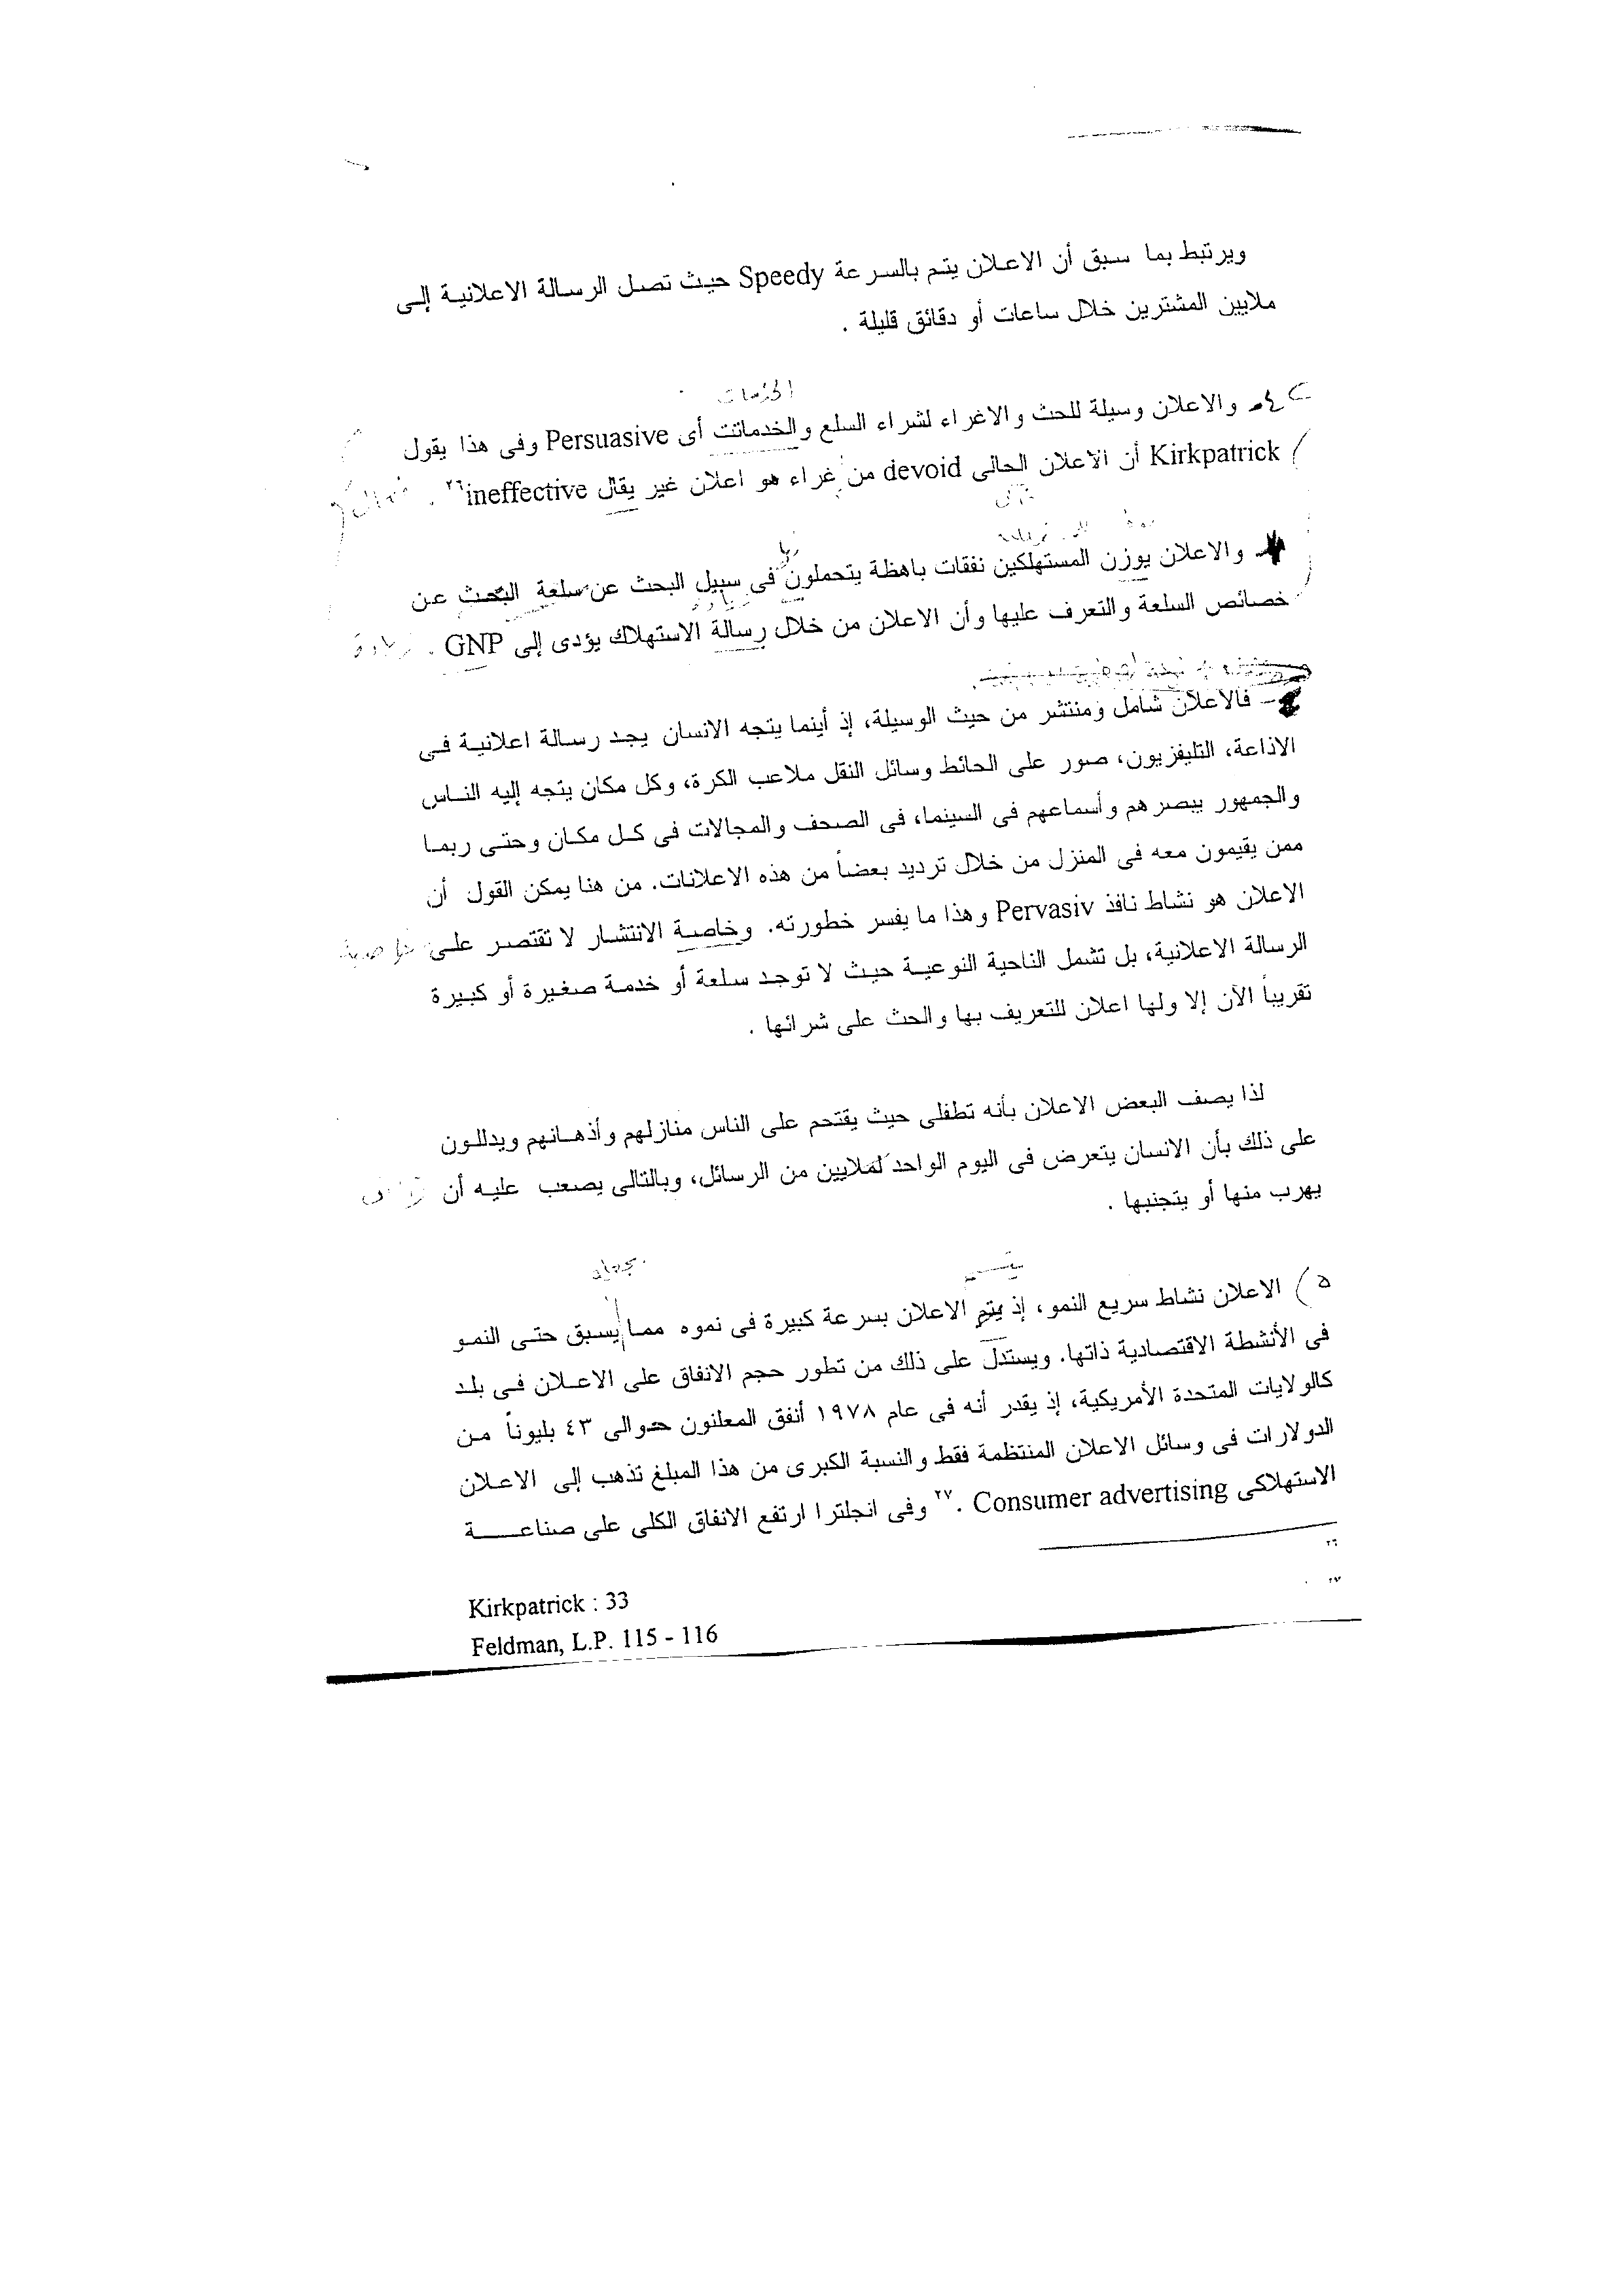 ويرتبط بما سبق أن الاعلان يتم بالسرعة Speedy حيث تصل الرسالة الاعلانية إلى
ملايين المشترين خلال ساعات أو دقائق قليلة .
الخدمات
٤- والاعلان وسيلة للحث والاغراء لشراء السلع والخدماتت أى Persuasive وفى هذا يقول
Kirkpatrick أن الاعلان الحالى devoid من غراء هو اعلان غير يقال ineffective٢٦ .
والاعلان يوزن المستهلكين نفقات باهظة يتحملون فى سبيل البحث عن سلعة البحث عن
خصائص السلعة والتعرف عليها وأن الاعلان من خلال رسالة الاستهلاك يؤدى إلى GNP . زيادة
- فالاعلان شامل ومنتشر من حيث الوسيلة، إذ أينما يتجه الانسان يجد رسالة اعلانية فى
الاذاعة، التليفزيون، صور على الحائط وسائل النقل ملاعب الكرة، وكل مكان يتجه إليه الناس
والجمهور ببصرهم وأسماعهم فى السينما، فى الصحف والمجالات فى كل مكان وحتى ربما
ممن يقيمون معه فى المنزل من خلال ترديد بعضاً من هذه الاعلانات. من هنا يمكن القول أن
الاعلان هو نشاط نافذ Pervasiv وهذا ما يفسر خطورته. وخاصة الانتشار لا تقتصر على
الرسالة الاعلانية، بل تشمل الناحية النوعية حيث لا توجد سلعة أو خدمة صغيرة أو كبيرة
تقريباً الآن إلا ولها اعلان للتعريف بها والحث على شرائها .
لذا يصف البعض الاعلان بأنه تطفلى حيث يقتحم على الناس منازلهم وأذهانهم ويدللون
على ذلك بأن الانسان يتعرض فى اليوم الواحد لملايين من الرسائل، وبالتالى يصعب عليه أن
يهرب منها أو يتجنبها .
يتسم يجعله
٥) الاعلان نشاط سريع النمو، إذ يتم الاعلان بسرعة كبيرة فى نموه مما يسبق حتى النمو
فى الأنشطة الاقتصادية ذاتها. ويستدل على ذلك من تطور حجم الانفاق على الاعلان فى بلد
كالولايات المتحدة الأمريكية، إذ يقدر أنه فى عام ١٩٧٨ أنفق المعلنون حوالى ٤٣ بليوناً من
الدولارات فى وسائل الاعلان المنتظمة فقط والنسبة الكبرى من هذا المبلغ تذهب إلى الاعلان
الاستهلاكى Consumer advertising .٢٧ وفى انجلترا ارتفع الانفاق الكلى على صناعة
٢٦
٢٧
Kirkpatrick : 33
Feldman, L.P. 115 - 116